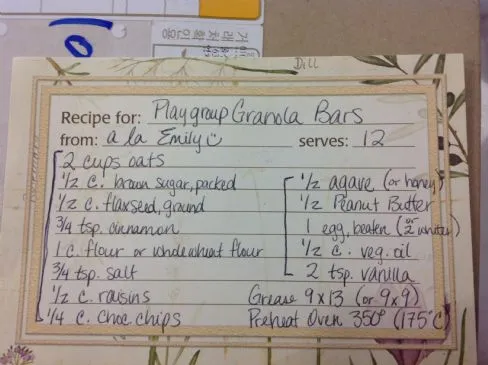 Dill
Recipe for: Playgroup Granola Bars
from: a la Emily serves: 12
2 cups oats
1/2 c. brown sugar, packed
1/2 c. flaxseed, ground
3/4 tsp. cinnamon
1 c. flour or whole wheat flour
3/4 tsp. salt
1/2 c. raisins
1/4 c. choc chips
1/2 agave (or honey)
1/2 Peanut Butter
1 egg, beaten (or 2 whites)
1/2 c. veg. oil
2 tsp. vanilla
Grease 9x13 (or 9x9)
Preheat Oven 350° (175°C)